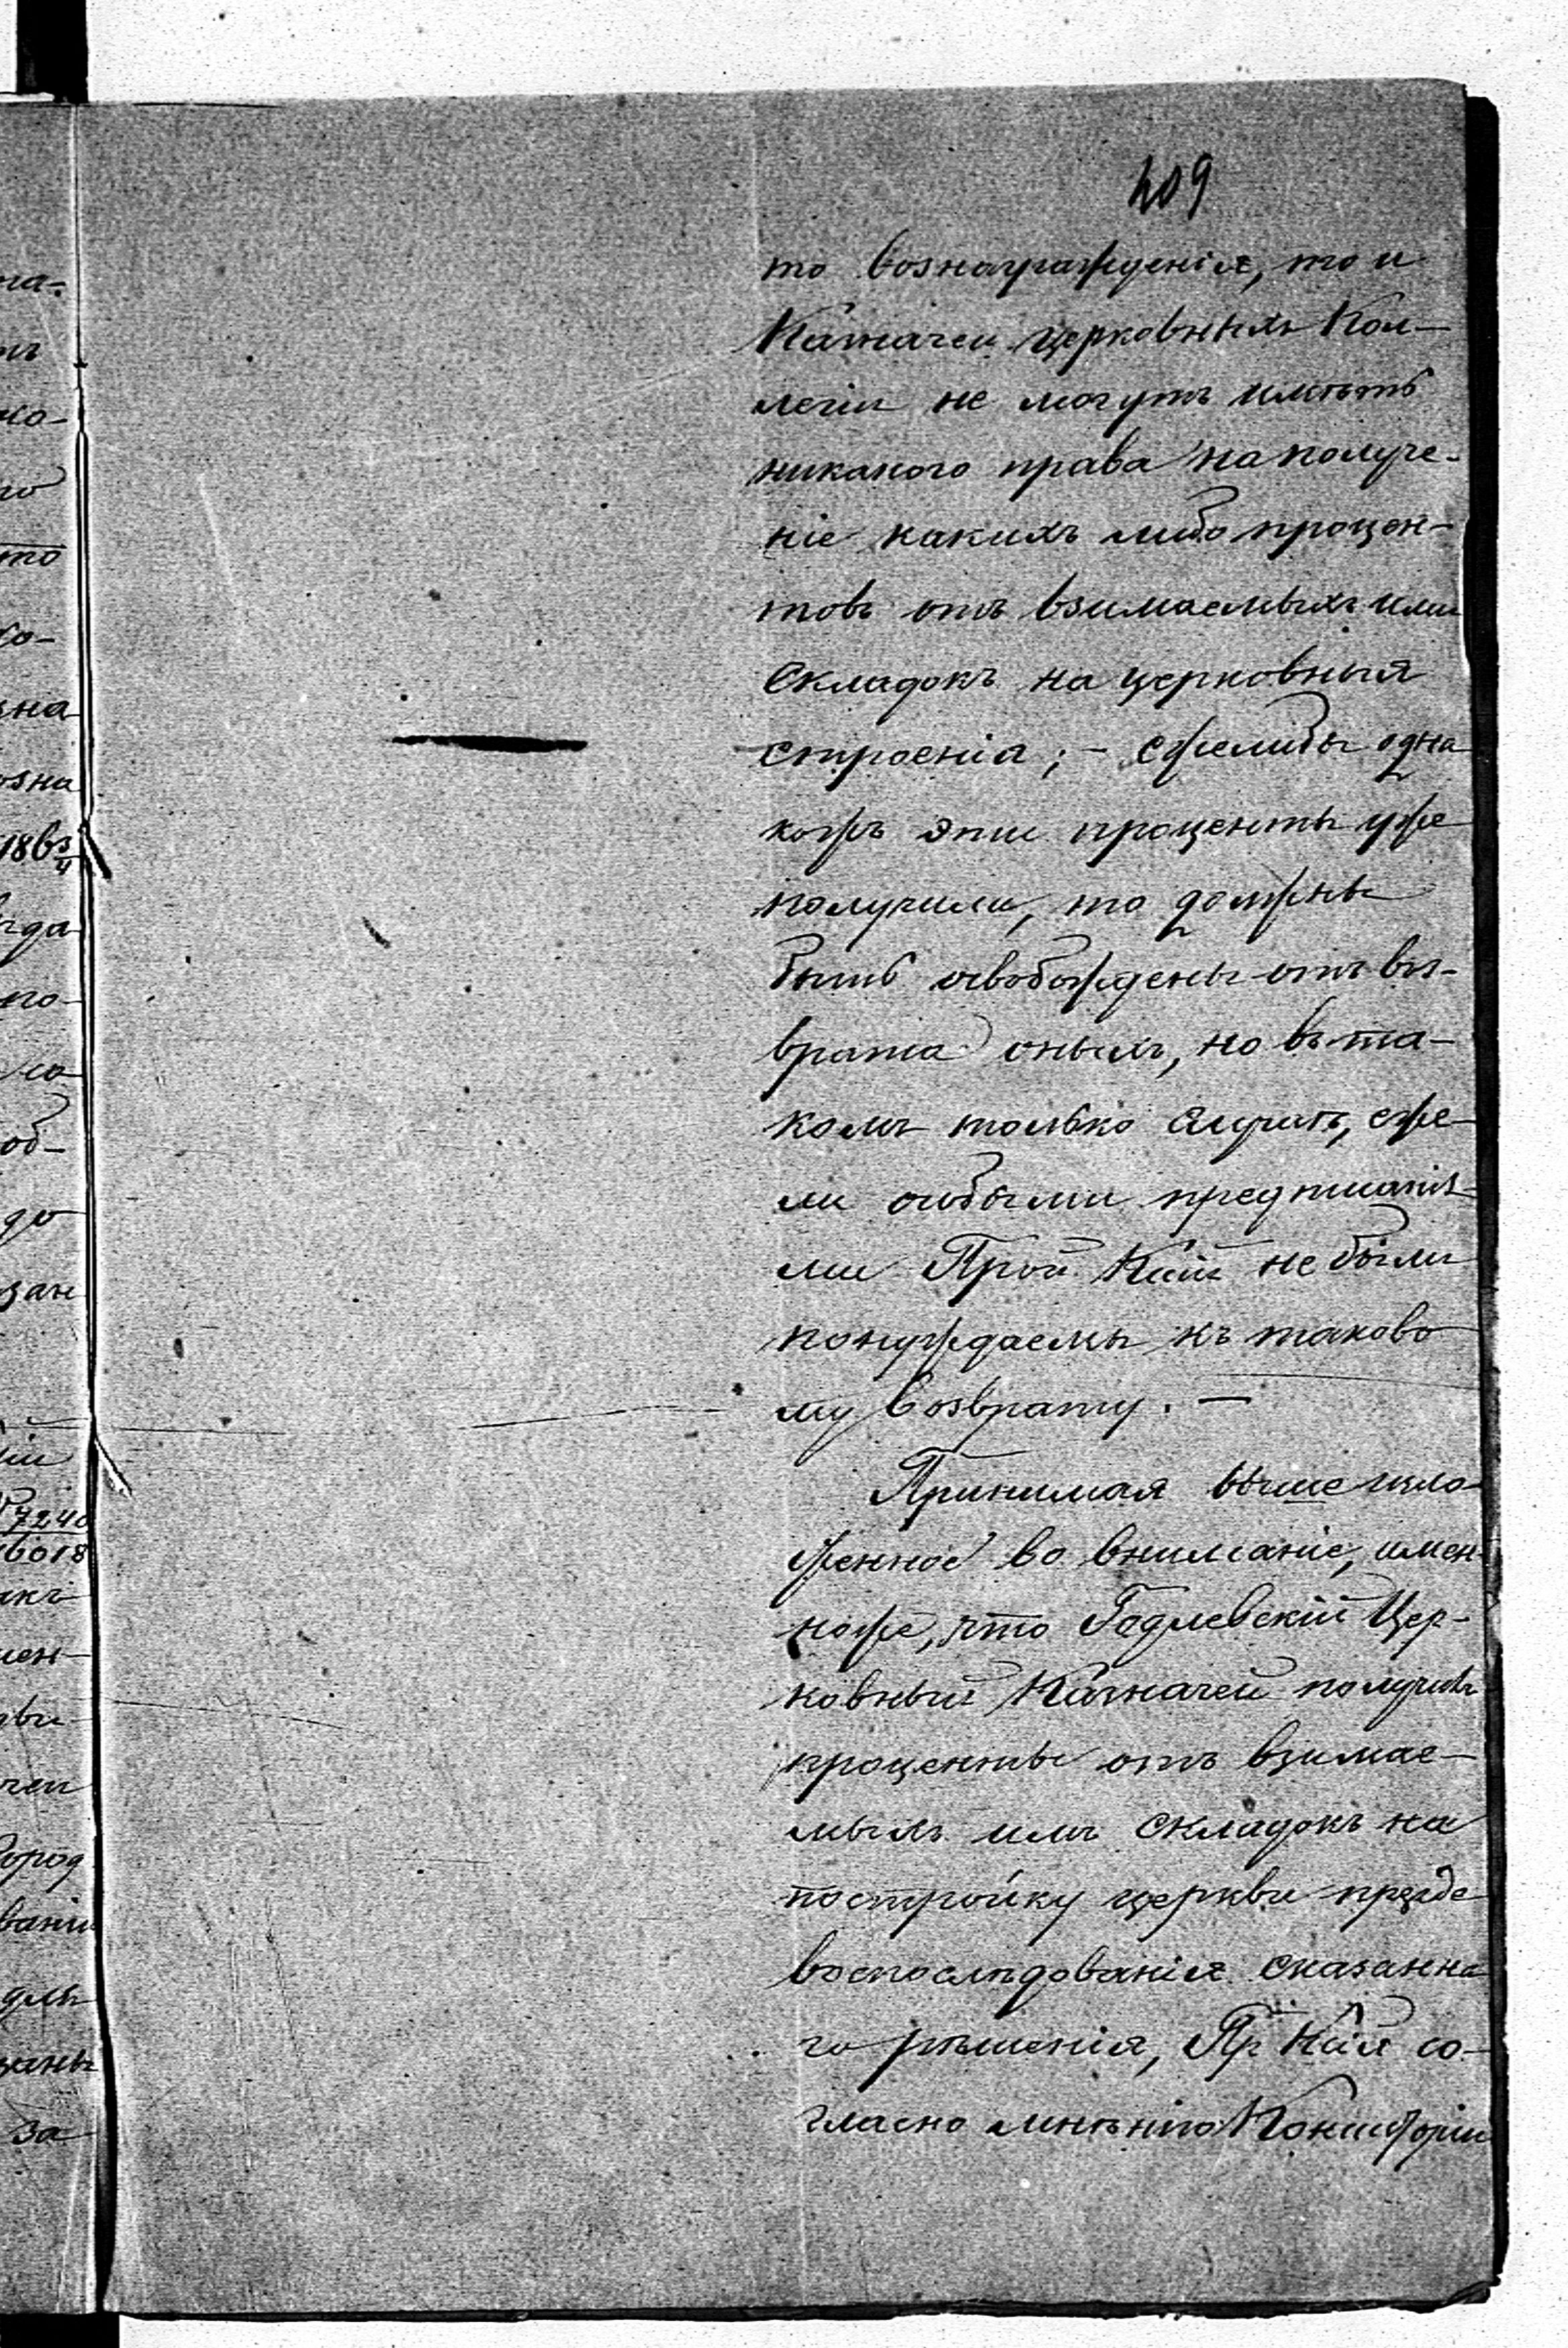 209
то вознагражденія, то и
Казначеи церковныхъ Кол-
легіи не могутъ имѣть
никакого права на получе-
ніе какихъ либо процен-
товъ отъ взимаемыхъ ими
складокъ на церковныя
строенія; – ежелибы одна
кожъ эти проценты уже
получили, то должны
быть освобождены отъ воз-
врата оныхъ, но въ та-
комъ только случаѣ, еже-
ли особыми предписанія
ми Прой Кіи не были
понуждаемы къ таково
му возврату. –
Принимая выше изло-
женное во вниманіе, имен-
ноже, что Годлевскій Цер-
ковный Казначей получилъ
проценты отъ взимае-
мыхъ имъ складокъ на
постройку церкви прежде
воспослѣдованія сказанна
го рѣшенія, Пр. Кія со-
гласно мнѣнію Консисторіи
на-
но-
то
ко-
зна
озна
гда
по-
со
об-
до
7240
6018
акъ
мен-
чей
город
ваніи
для
за